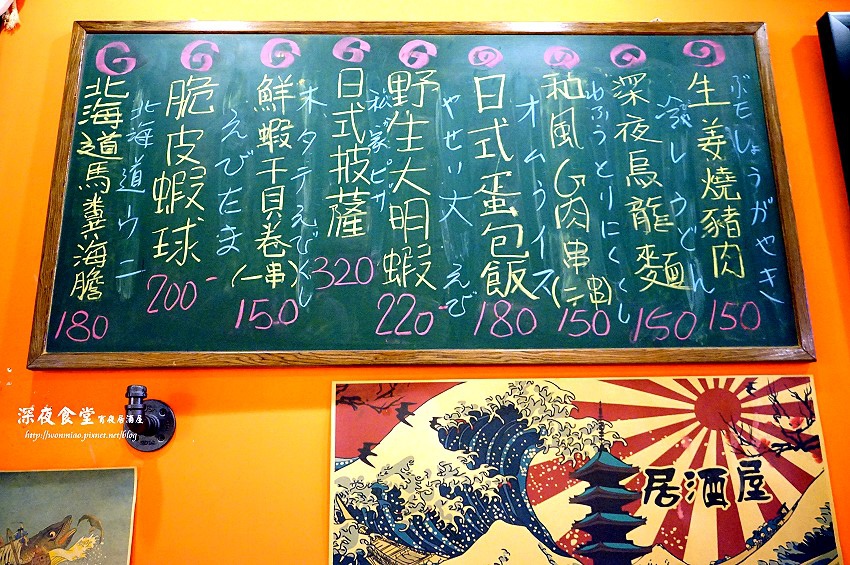 生姜燒豬肉
ぶたしょうがやき
150
深夜烏龍麵
冷しうどん
150
和風G肉串(二串)
わふうとりにくくし
150
日式蛋包飯
オムライス
180
野生大明蝦
やせい大えび
220-
日式披薩
私が家ピザ
320
鮮蝦干貝卷(一串)
ホタテえびくし
150
脆皮蝦球
えびたま
200-
北海道馬糞海膽
北海道ウニ
180
深夜食堂 宵夜居酒屋
http://wonmiao.pixnet.net/blog
居酒屋